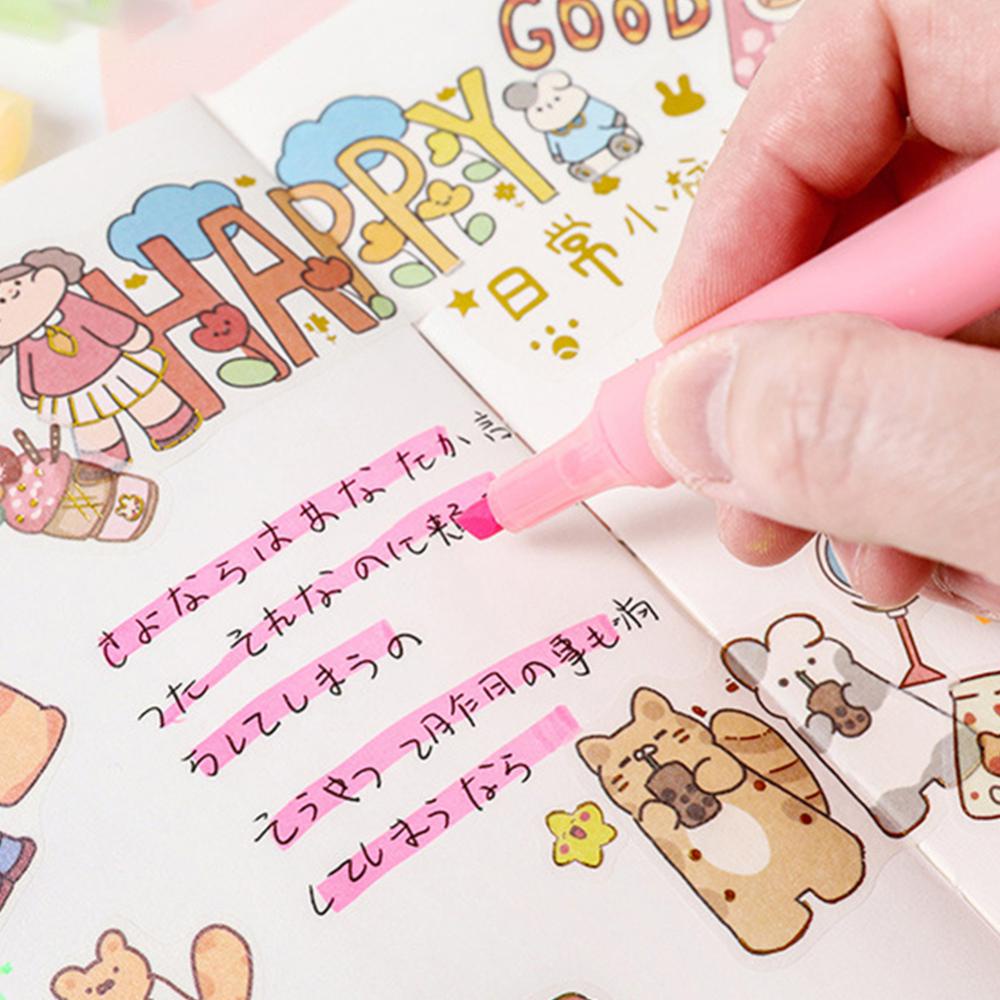 GOOD
HAPPY
日常小
さよならはあなたか言
った それなのに頬
らしてしまうの
そうやって昨日の事も消
してしまうなら